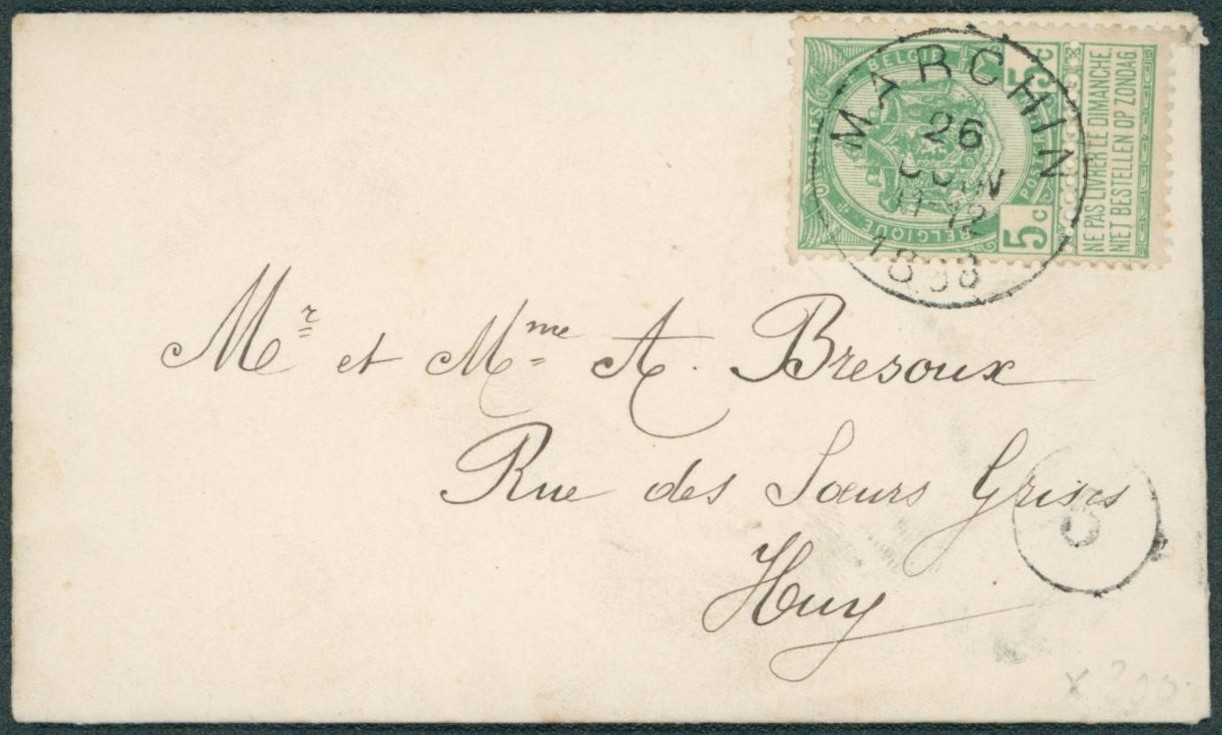 MARCHIN
26
JUIN
11-12
1898
BELGIË
BELGIQUE
POSTERIJEN
5c
5c
NE PAS LIVRER LE DIMANCHE.
NIET BESTELLEN OP ZONDAG.
Mr et Mme A. Bresoux
Rue des Sœurs Grises
Huy
x 300.